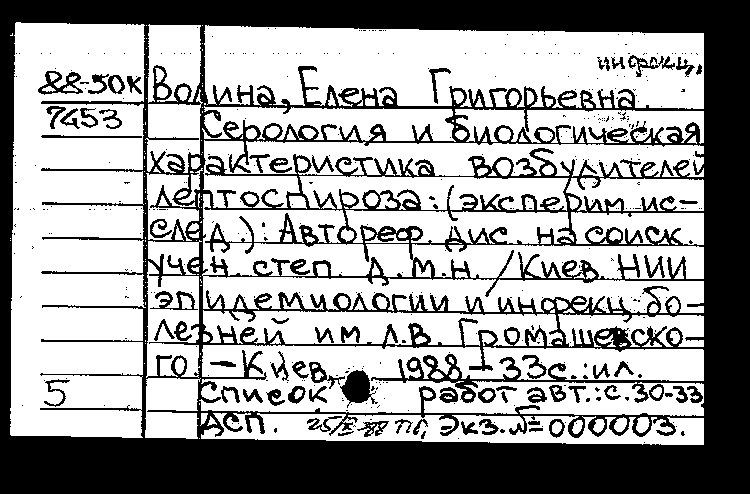 инфекц.
88-50к Волина, Елена Григорьевна.
7453 Серология и биологическая
характеристика возбудителей
лептоспироза: (эксперим. ис-
след.): Автореф. дис. на соиск.
учен. степ. д.м.н. /Киев. НИИ
эпидемиологии и инфекц. бо-
лезней им. Л.В. Громашевско-
го. - Киев, 1988 - 33с.: ил.
5 Список работ авт.: с.30-33
ДСП. Экз. № 000003.